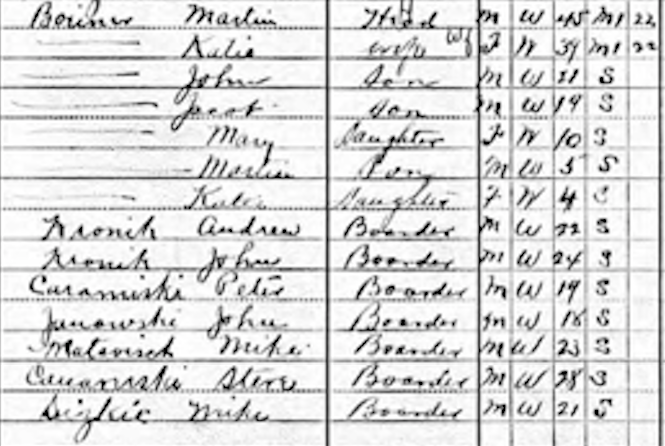 Martin Head M W 45 M1 22
— Katie wife Wf F W 39 M1 22
— John Son M W 21 S
— Jacob Son M W 19 S
— Mary Daughter F W 10 S
— Martin Son M W 5 S
— Katie Daughter F W 4 S
Kronik Andrew Boarder M W 22 S
Kronik John Boarder M W 24 S
Peter Boarder M W 19 S
Janowski John Boarder M W 18 S
Matavisch Mike Boarder M W 23 S
Steve Boarder M W 28 S
Mike Boarder M W 21 S